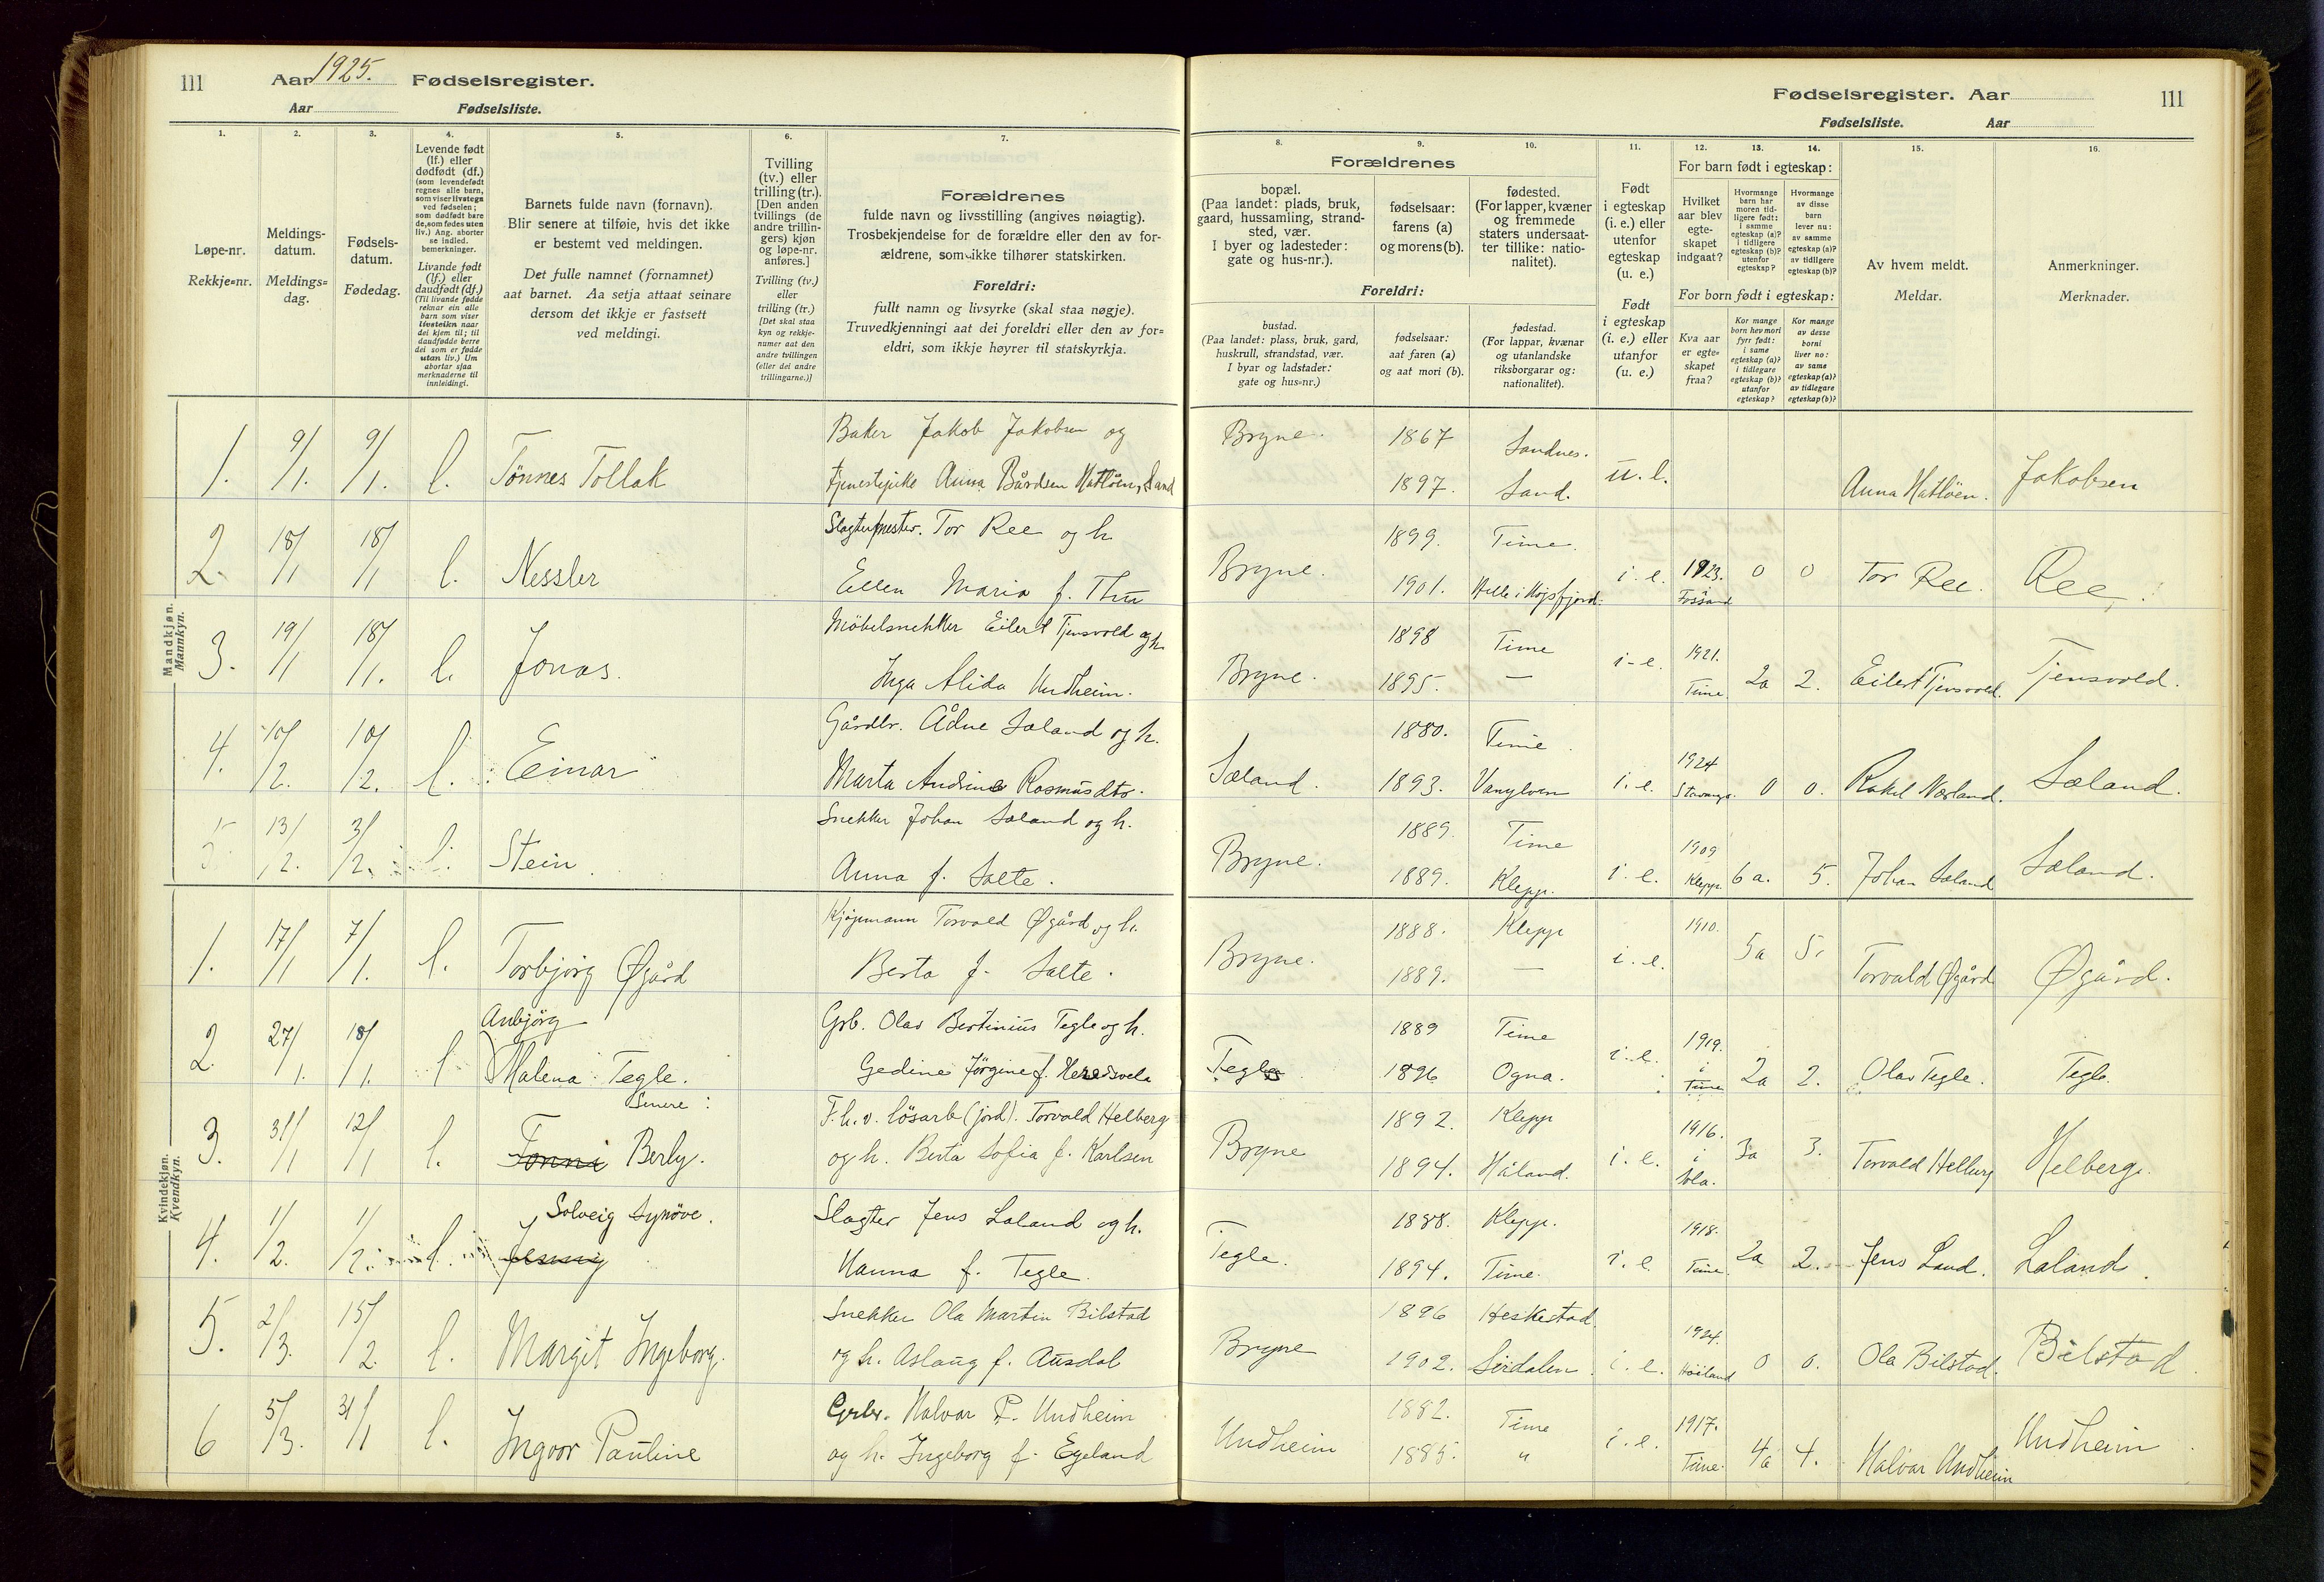 111 Aar 1925. Fødselsregister.
Aar Fødselsliste.
Fødselsregister. Aar 111
Fødselsliste. Aar
1. 2. 3. 4. 5. 6. 7.
Løpe-nr.
Rekkje=nr.
Meldings-
datum.
Meldings=
dag.
Fødsels-
datum.
Fødedag.
Levende født
(lf.) eller
dødfødt (df.)
(som levendefødt
regnes alle barn,
som viser livstegn
ved fødselen;
som dødfødt bare
de, som fødes uten
liv.) Ang. aborter
se indled.
bemerkninger.
Livande født
(lf.) eller
daudfødt (df.)
(Til livande fødde
reknar ein alle
barn som viser
livsteikn naar
dei kjem til; til
daudfødde berre
dei som er fødde
utan liv.) Um
abortar sjaa
merknaderne til
innleidingi.
Barnets fulde navn (fornavn).
Blir senere at tilføie, hvis det ikke
er bestemt ved meldingen.
Det fulle namnet (fornamnet)
aat barnet. Aa setja attaat seinare
dersom det ikkje er fastsett
ved meldingi.
Tvilling
(tv.) eller
trilling (tr.).
[Den anden
tvillings (de
andre trillin-
gers) kjøn
og løpe-nr.
anføres.]
Tvilling (tv.)
eller
trilling (tr.)
[Det skal staa
kyn og rekkje-
numer aat den
andre tvillingen
(eller dei andre
trillingarne.)]
Forældrenes
fulde navn og livsstilling (angives nøiagtig).
Trosbekjendelse for de forældre eller den av for-
ældrene, som ikke tilhører statskirken.
Foreldri:
fullt namn og livsyrke (skal staa nøgje).
Truvedkjenningi aat dei foreldri eller den av for=
eldri, som ikkje høyrer til statskyrkja.
8. 9. 10. 11. 12. 13. 14. 15. 16.
Forældrenes
bopæl.
(Paa landet: plads, bruk,
gaard, hussamling, strand-
sted, vær.
I byer og ladesteder:
gate og hus-nr.).
fødselsaar:
farens (a)
og morens (b).
fødested.
(For lapper, kvæner
og fremmede
staters undersaat-
ter tillike: natio-
nalitet).
Foreldri:
bustad.
(Paa landet: plass, bruk, gard,
huskrull, strandstad, vær.
I byar og ladstader:
gate og hus=nr.)
fødselsaar:
aat faren (a)
og aat mori (b).
fødestad.
(For lappar, kvænar
og utanlandske
riksborgarar og:
nationalitet).
Født
i egteskap
(i. e.) eller
utenfor
egteskap
(u. e.)
Født
i egteskap
(i. e.) eller
utanfor
(u. e.)
For barn født i egteskap:
Hvilket
aar blev
egte-
skapet
indgaat?
Hvormange
barn har
moren tid-
ligere født:
i samme
egteskap (a)?
i tidligere
egteskap (b)?
utenfor
egteskap?
Hvormange
av disse
barn
lever nu:
av samme
egteskap (a)?
av tidligere
egteskap (b)?
For born født i egteskap:
Kva aar
er egte=
skapet
fraa?
Kor mange
born hev mori
fyrr født:
i same
egteskap (a)?
i tidlegare
egteskap (b)?
utanfor
egteskap?
Kor mange
av desse
borni
liver no:
av same
egteskap (a)?
av tidlegare
egteskap (b)?
Av hvem meldt.
Meldar.
Anmerkninger.
Merknader.
Mandkjøn.
Mannkyn.
1. 9/1. 9/1. l. Tønnes Tollak Baker Jakob Jakobsen og
tjenestepike Anna Bårdsen Hatløen, Sand
Bryne. 1867 Sandnes. u. l. Anna Hatløen. Jakobsen
1897. Sand.
2. 18/1 18/1 l. Nessler Slagtermester. Tor Ree og h.
Ellen Maria f. Thu
Bryne. 1899. Time. i. e. 1923. 0 0 Tor Ree. Ree.
1901. Helle i Høgsfjord. Fossand
3. 19/1 18/1. l. Jonas. Møbelsnekker Eilert Tjensvold og h.
Inga Alida Undheim.
Bryne. 1898 Time i-e. 1921. 2a 2. Eilert Tjensvold. Tjensvold.
1895. — Time
4. 10/2. 10/2. l. Einar Gårdbr. Ådne Sæland og h.
Marta Andrine Rasmusdtr.
Sæland. 1880. Time. i. e. 1924 0 0. Rakel Næsland. Sæland.
1893. Vanylven Stavanger.
5. 13/2. 3/2. l. Stein. Snekker Johan Sæland og h.
Anna f. Salte.
Bryne. 1889. Time i. e. 1909 6 a. 5. Johan Sæland Sæland.
1889. Klepp. Klepp.
Kvindekjøn.
Kvendkyn.
1. 17/1 7/1. l. Torbjørg Øgård Kjøpmann Torvald Øgård og h.
Berta f. Salte.
Bryne. 1888. Klepp i. e. 1910. 5a 5. Torvald Øgård Øgård.
1889. —
2. 27/1. 18/1. l Anbjørg
Malena Tegle. Grb. Olav Bertinius Tegle og h.
Gedine Jørgine f. Heredsvela
Tegle 1889 Time i. e. 1919. i Time 2a 2. Olav Tegle. Tegle.
1896 Ogna.
3. 31/1 12/1 l. Senere:
Tonni Berly. F. h. v. løsarb (jord). Torvald Helberg
og h. Berta Sofia f. Karlsen
Bryne 1892. Klepp i. e. 1916. i Sola. 3a 3. Torvald Helberg Helberg.
1894. Håland.
4. 1/2. 1/2. l. Solveig Synøve.
Jenny Slagter Jens Laland og h.
Hanna f. Tegle.
Tegle. 1888. Klepp. i. e. 1918. Time 2a 2. Jens Laand. Laland.
1894. Time.
5. 2/3. 15/2. l. Margit Ingeborg. Snekker Ola Martin Bilstad
og h. Aslaug f. Ausdal
Bryne 1896 Heskestad. i. e. 1924. Høiland 0 0. Ola Bilstad. Bilstad.
1902. Sirdalen
6 5/3. 31/1 l. Ingvor Pauline Grbr. Halvar P. Undheim
og h. Ingeborg f. Egeland
Undheim 1882. Time i. e. 1917. Time. 4a 4. Halvar Undheim Undheim
1885. "